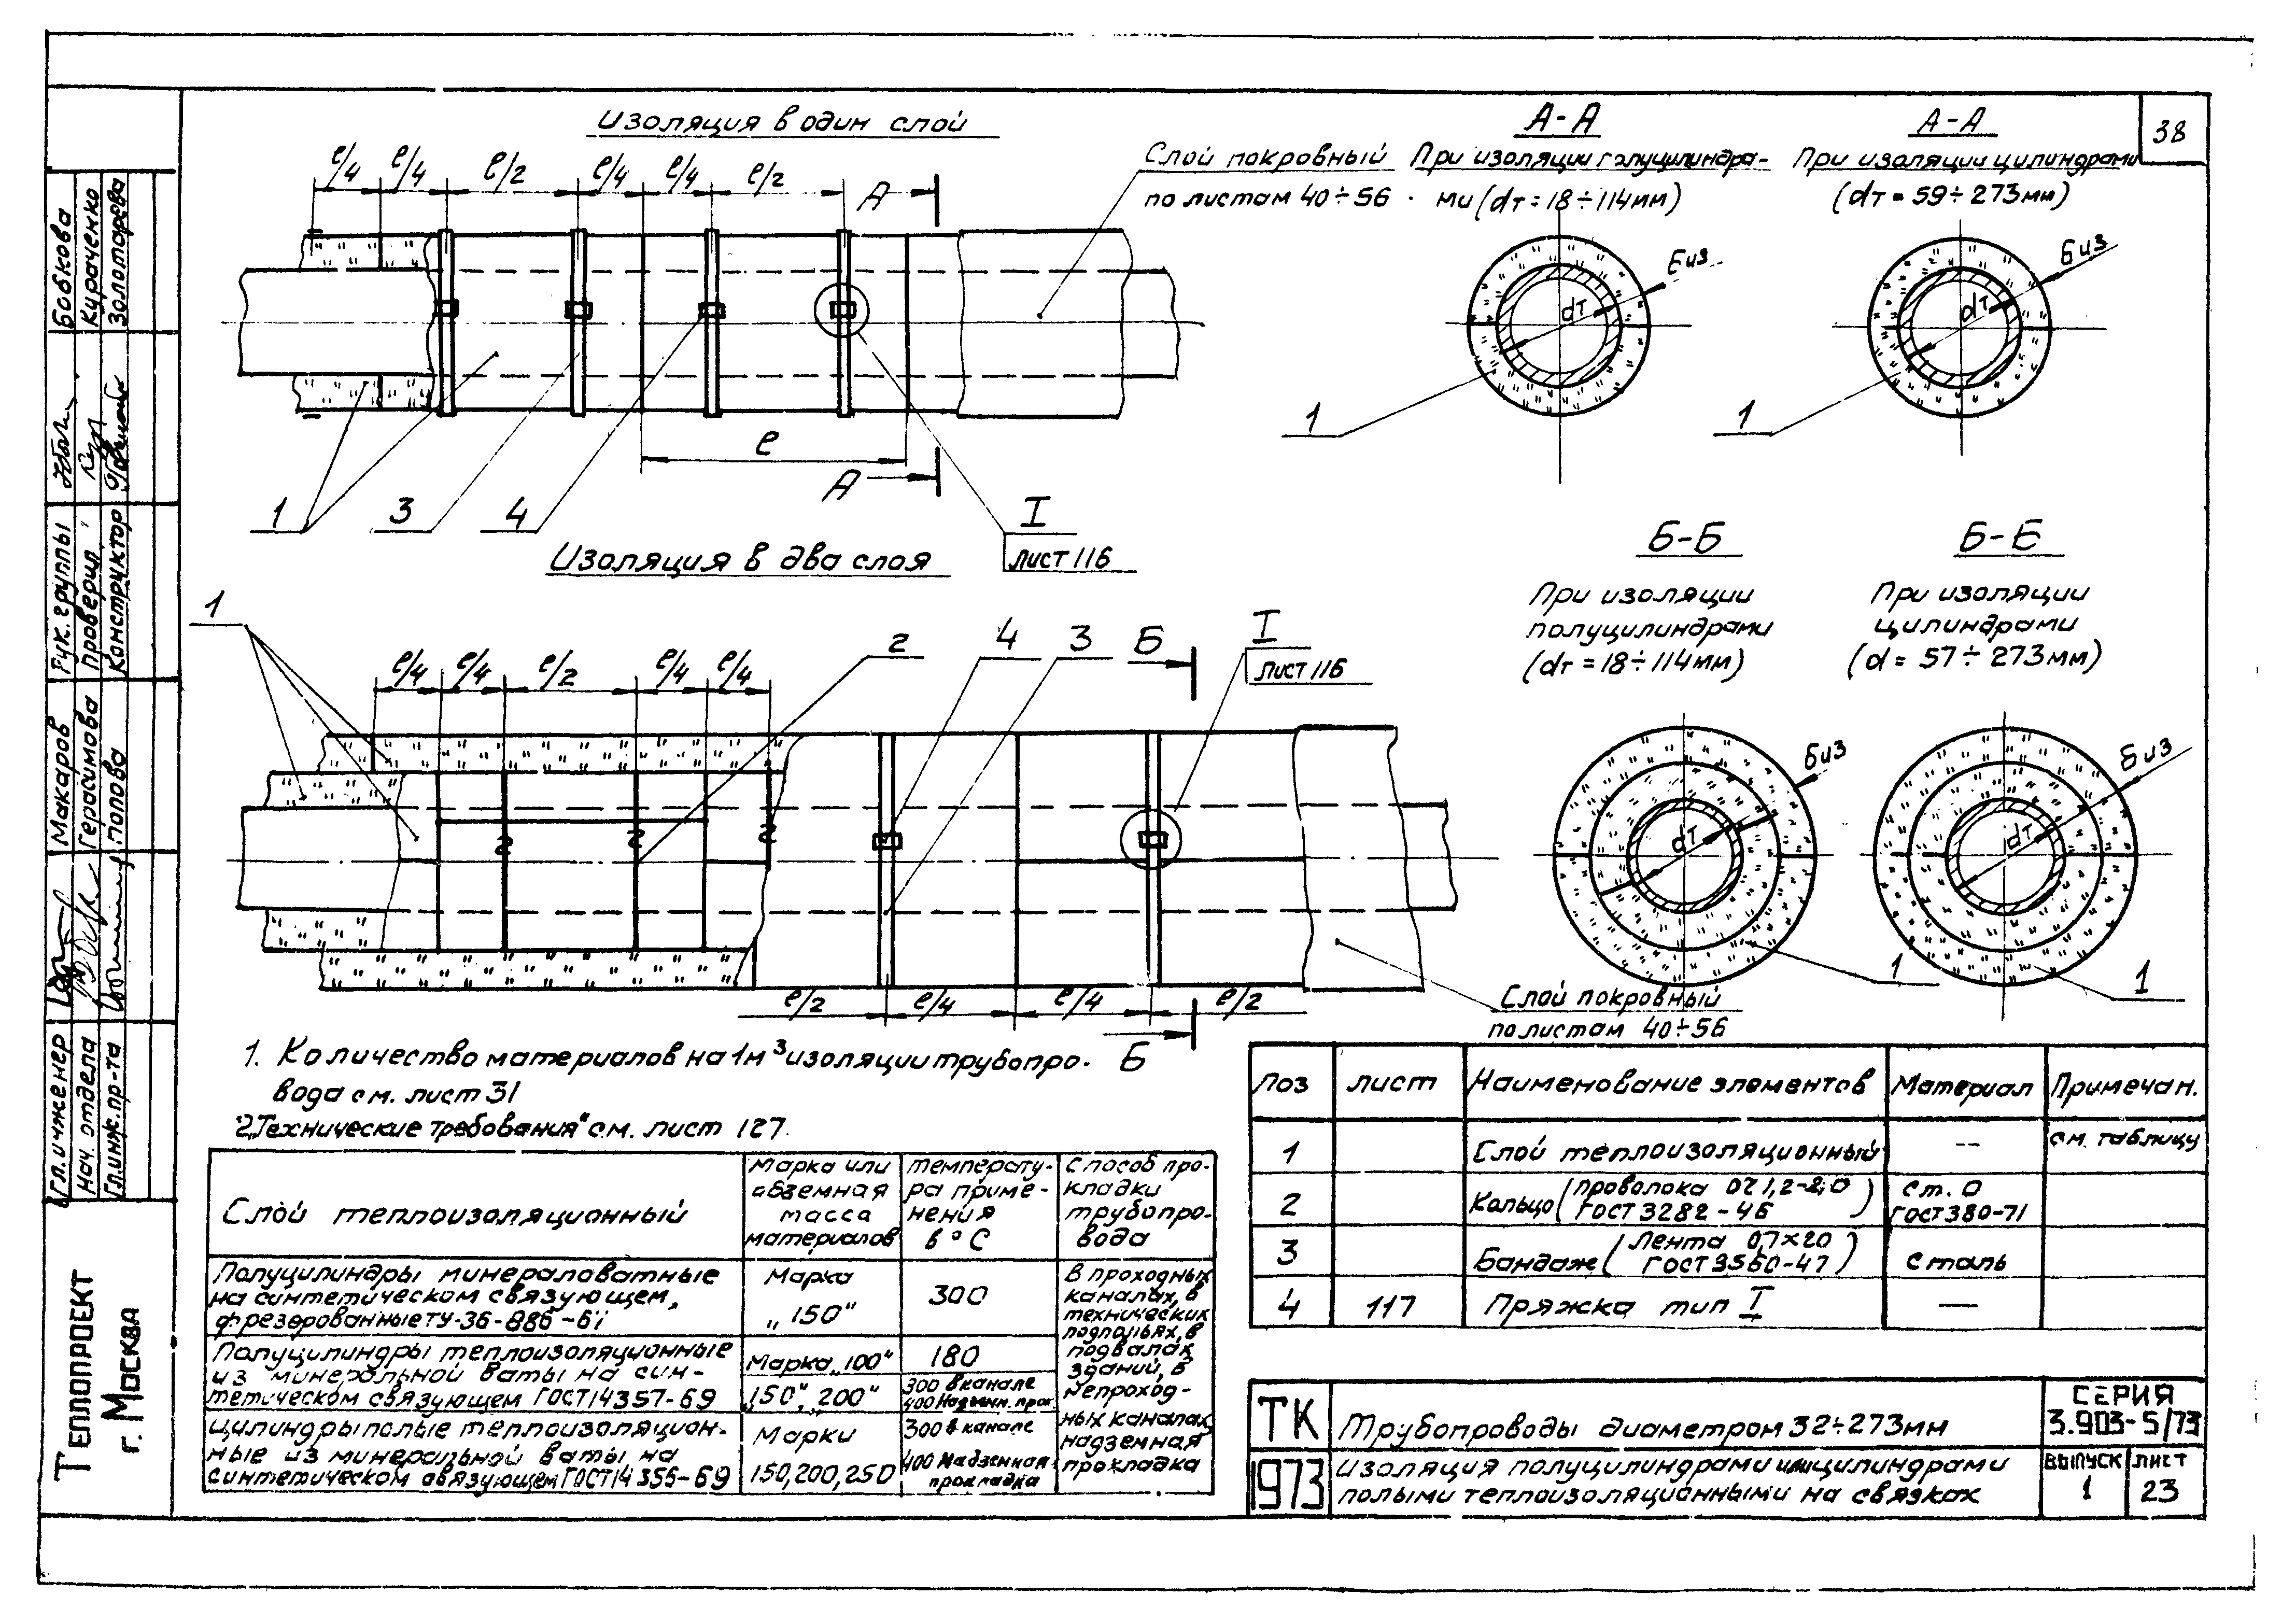 38
Изоляция в один слой
ℓ/4 ℓ/4 ℓ/2 ℓ/4 ℓ/4 ℓ/2
А
Слой покровный
по листам 40÷56
А-А
При изоляции полуцилиндра-
ми (dт=18÷114мм)
А-А
При изоляции цилиндрами
(dт=59÷273мм)
Биз
dт
1
Биз
dт
1
ℓ
А
1 3 4
I
лист 116
Изоляция в два слоя
1
ℓ/4 ℓ/4 ℓ/2 ℓ/4 ℓ/4
2 4 3 Б
I
лист 116
Б-Б
При изоляции
полуцилиндрами
(dт=18÷114мм)
Б-Б
При изоляции
цилиндрами
(d=57÷273мм)
Биз
dт
1
Биз
dт
1
ℓ/2 ℓ/4 ℓ/4 ℓ/2
Б
Слой покровный
по листам 40÷56
1. Количество материалов на 1м³ изоляции трубопро-
вода см. лист 31
2. „Технические требования" см. лист 127.
Слой теплоизоляционный
Марка или
обземная
масса
материалов
температу-
ра приме-
нения
в °С
Способ про-
кладки
трубопро-
вода
Полуцилиндры минераловатные
на синтетическом связующем,
фрезерованные ТУ-36-886-6
Марка
„150"
300
Полуцилиндры теплоизоляционные
из минеральной ваты на син-
тетическом связующем ГОСТ 14357-69
Марка „100"
180
„150", 200"
300 в канале
400 Надземн. прок.
Цилиндры полые теплоизоляцион-
ные из минеральной ваты на
синтетическом связующем ГОСТ 14 356-69
Марки
150, 200, 250
300 в канале
400 Надземная
прокладка
В проходных
каналах, в
технических
подпольях, в
подвалах
зданий, в
непроход-
ных каналах,
надземная
прокладка
Поз лист Наименование элементов Материал Примечан.
1 Слой теплоизоляционный — см. таблицу
2 Кольцо (проволока ОЧ 1,2-2,0 ГОСТ 3282-46) ст. 0 ГОСТ 380-71
3 Бандаж (Лента 0,7×20 ГОСТ 3560-47) сталь
4 117 Пряжка тип I —
ТК
1973
Трубопроводы диаметром 32÷273мм
Изоляция полуцилиндрами или цилиндрами
полыми теплоизоляционными на связках
СЕРИЯ
3.903-5/73
ВЫПУСК
1
ЛИСТ
23
Гл. инженер Макаров
Нач. отдела Герасимова
Гл. инж. пр-та Попова
Рук. группы Бобкова
Проверил Кураченко
Конструктор Золоторева
ТЕПЛОПРОЕКТ
г. Москва